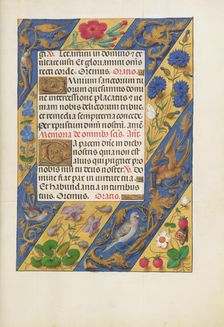 gi. Letamini in domino et ex
ultate iusti Et gloriamini omnes
recti corde. Oremus. Oratio.
Omnium sanctorum tu
orum quesumus domi
ne intercessione placatus et ve
niam nobis delictorum tribue et
remedia sempiterna concede. Per
Christum dominum nostrum. Amen.
Memoria de omnibus sanctis. Ant.
Da pacem domine in die
bus nostris quia non
est alius qui pugnet pro no
bis nisi tu deus noster. V. do
mine fiat pax in virtute tua.
Et habundantia in turribus
tuis. Oremus. Oratio.